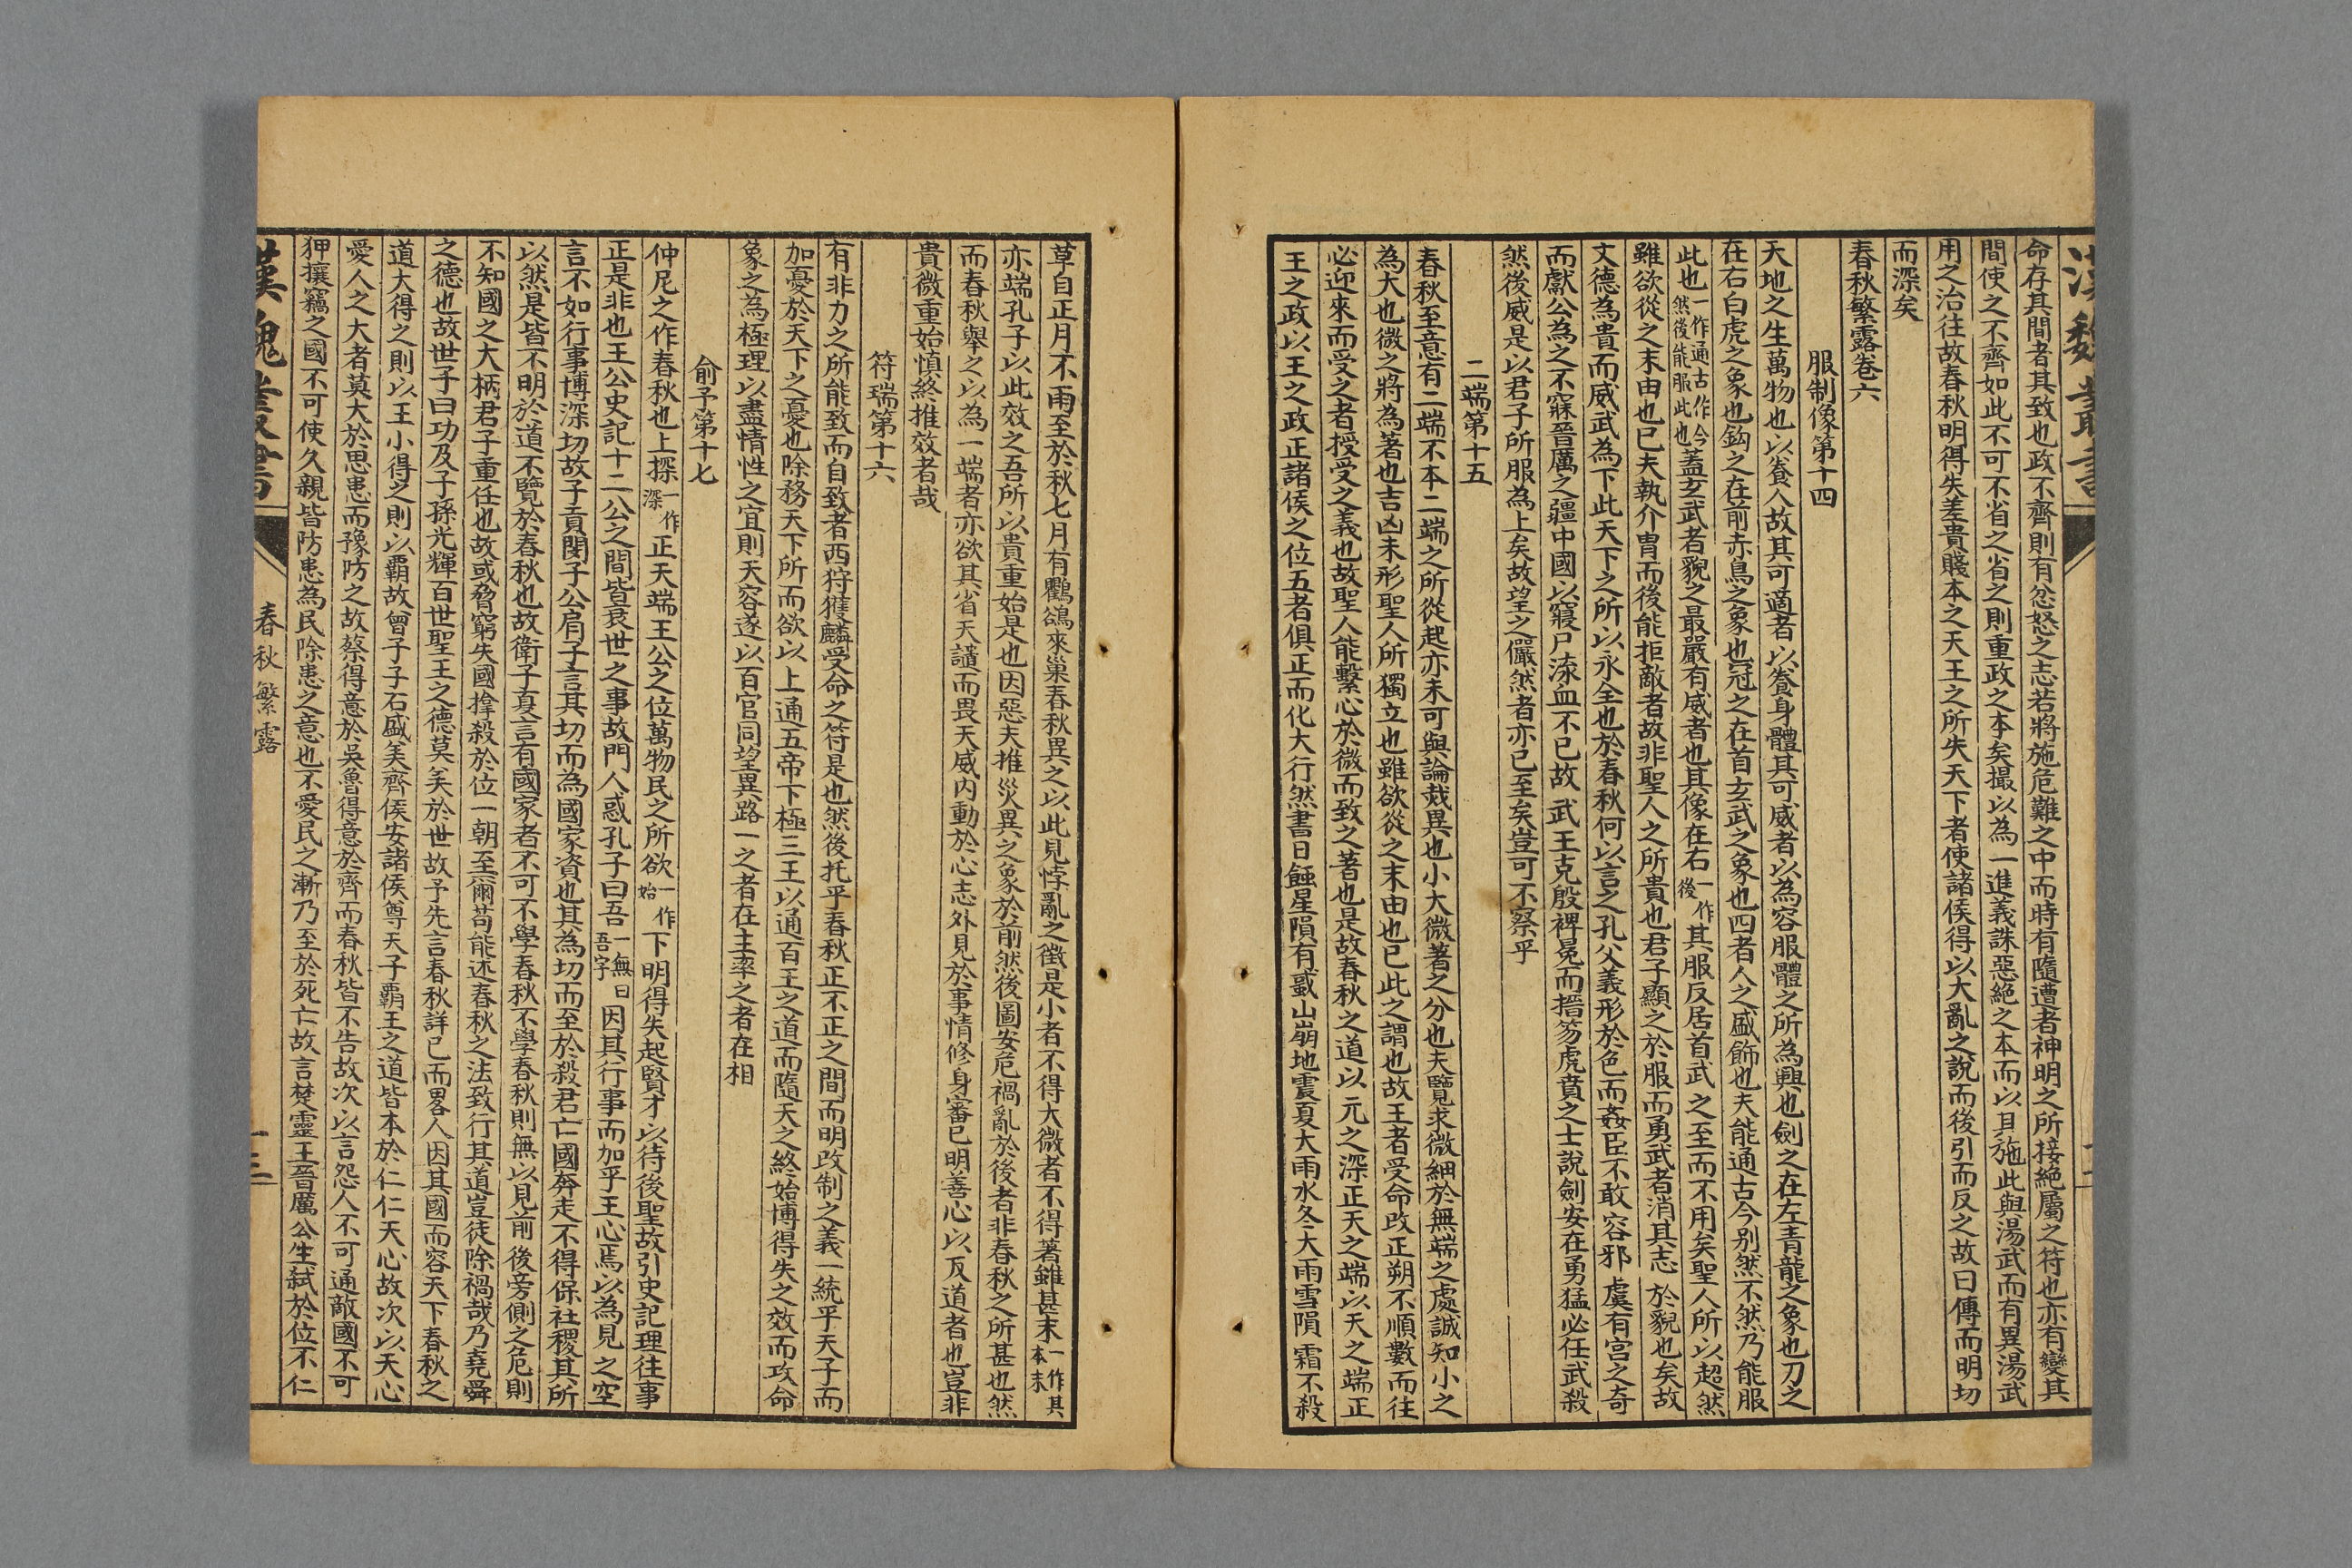 漢魏叢書
命存其間者其致也政不齊則有忿怒之志若將施危難之中而時有隨遭者神明之所接絶屬之符也亦有變其
間使之不齊如此不可不省之省之則重政之本矣撮以為一進義誅惡絶之本而以其施此與湯武而有異湯武
用之治往故春秋明得失差貴賤本之天王之所失天下者使諸侯得以大亂之說而後引而反之故曰傳而明切
而深矣
春秋繁露卷六
服制像第十四
天地之生萬物也以養人故其可適者以養身體其可威者以為容服體之所為興也劍之在左青龍之象也刀之
在右白虎之象也鈎之在前赤鳥之象也冠之在首玄武之象也四者人之盛飾也夫能通古今别然不然乃能服
此也一作通古作今然後能服此也蓋玄武者貌之最嚴有威者也其像在右一作後其服反居首武之至而不用矣聖人所以超然
雖欲從之末由也已夫執介胄而後能拒敵者故非聖人之所貴也君子顯之於服而勇武者消其志於貌也矣故
文德為貴而威武為下此天下之所以永全也於春秋何以言之孔父義形於色而姦臣不敢容邪虞有宮之奇
而獻公為之不寐晉厲之疆中國以寢尸流血不已故武王克殷裨冕而搢笏虎賁之士說劍安在勇猛必任武殺
然後威是以君子所服為上矣故望之儼然者亦已至矣豈可不察乎
二端第十五
春秋至意有二端不本二端之所從起亦未可與論烖異也小大微著之分也夫覽求微細於無端之處誠知小之
為大也微之將為著也吉凶未形聖人所獨立也雖欲從之末由也已此之謂也故王者受命改正朔不順數而往
必迎來而受之者授受之義也故聖人能繫心於微而致之著也是故春秋之道以元之深正天之端以天之端正
王之政以王之政正諸侯之位五者俱正而化大行然書日蝕星隕有蜮山崩地震夏大雨水冬大雨雪隕霜不殺
草自正月不雨至於秋七月有鸜鵒來巢春秋異之以此見悖亂之徵是小者不得大微者不得著雖甚末一作其本末
亦端孔子以此效之吾所以貴重始是也因惡夫推災異之象於前然後圖安危禍亂於後者非春秋之所甚也然
而春秋舉之以為一端者亦欲其省天譴而畏天威内動於心志外見於事情修身審已明善心以反道者也豈非
貴微重始慎終推效者哉
符瑞第十六
有非力之所能致而自致者西狩獲麟受命之符是也然後托乎春秋正不正之間而明改制之義一統乎天子而
加憂於天下之憂也除務天下所而欲以上通五帝下極三王以通百王之道而隨天之終始博得失之效而攻命
象之為極理以盡情性之宜則天容遂以百官同望異路一之者在主率之者在相
俞予第十七
仲尼之作春秋也上探一作深正天端王公之位萬物民之所欲一作始下明得失起賢才以待後聖故引史記理往事
正是非也王公史記十二公之間皆衰世之事故門人惑孔子曰吾一無曰吾字因其行事而加乎王心焉以為見之空
言不如行事博深切故子貢閔子公肩子言其切而為國家資也其為切而至於殺君亡國奔走不得保社稷其所
以然是皆不明於道不覽於春秋也故衛子夏言有國家者不可不學春秋不學春秋則無以見前後旁側之危則
不知國之大柄君子重任也故或脅窮失國撑殺於位一朝至爾苟能述春秋之法致行其道豈徒除禍哉乃堯舜
之德也故世子曰功及子孫光輝百世聖王之德莫美於世故予先言春秋詳已而畧人因其國而容天下春秋之
道大得之則以王小得之則以霸故曾子子石盛美齊侯安諸侯尊天子霸王之道皆本於仁仁天心故次以天心
愛人之大者莫大於思患而豫防之故蔡得意於吳魯得意於齊而春秋皆不告故次以言怨人不可通敵國不可
狎攘竊之國不可使久親皆防患為民除患之意也不愛民之漸乃至於死亡故言楚靈王晉厲公生弒於位不仁
漢魏叢書
春秋繁露